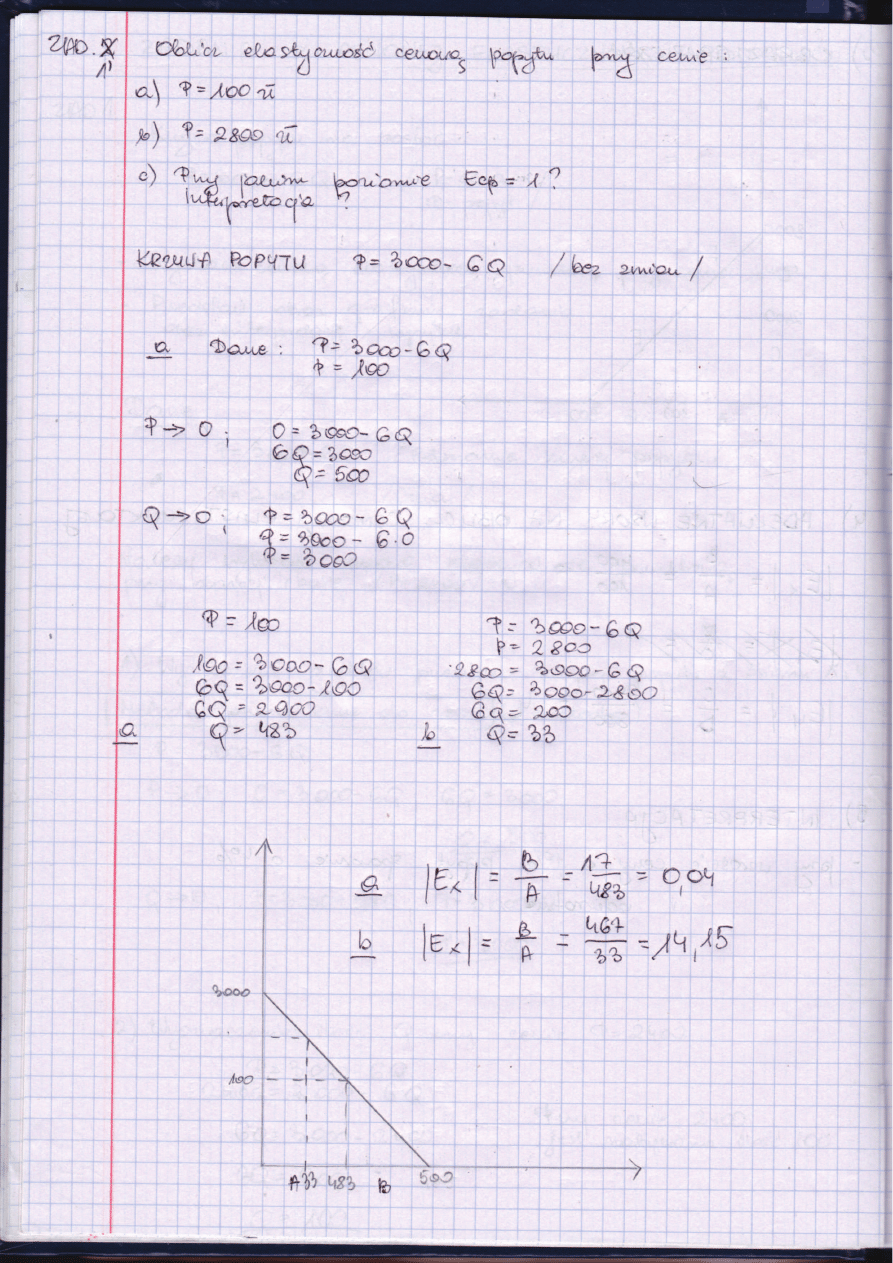 ZAD. 1'
Oblicz elastyczność cenową popytu przy cenie :
a) P = 100 zł
b) P = 2800 zł
c) Przy jakim poziomie Ecp = 1 ?
Interpretacja ?
KRZYWA POPYTU P = 3000 - 6Q / bez zmian /
a Dane : P = 3000 - 6Q
P = 100
P → 0 ; 0 = 3000 - 6Q
6Q = 3000
Q = 500
Q → 0 ; P = 3000 - 6Q
P = 3000 - 6·0
P = 3000
P = 100
100 = 3000 - 6Q
6Q = 3000 - 100
6Q = 2900
a Q = 483
P = 3000 - 6Q
P = 2800
2800 = 3000 - 6Q
6Q = 3000 - 2800
6Q = 200
b Q = 33
a |Ex| = B/A = 17/483 = 0,04
b |Ex| = B/A = 467/33 = 14,15
3000
100
A 33 483 B 500